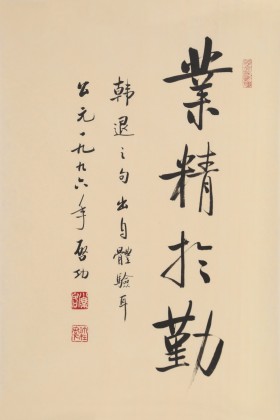 業精於勤
韩退之句出自體驗耳
公元一九九六年啓功